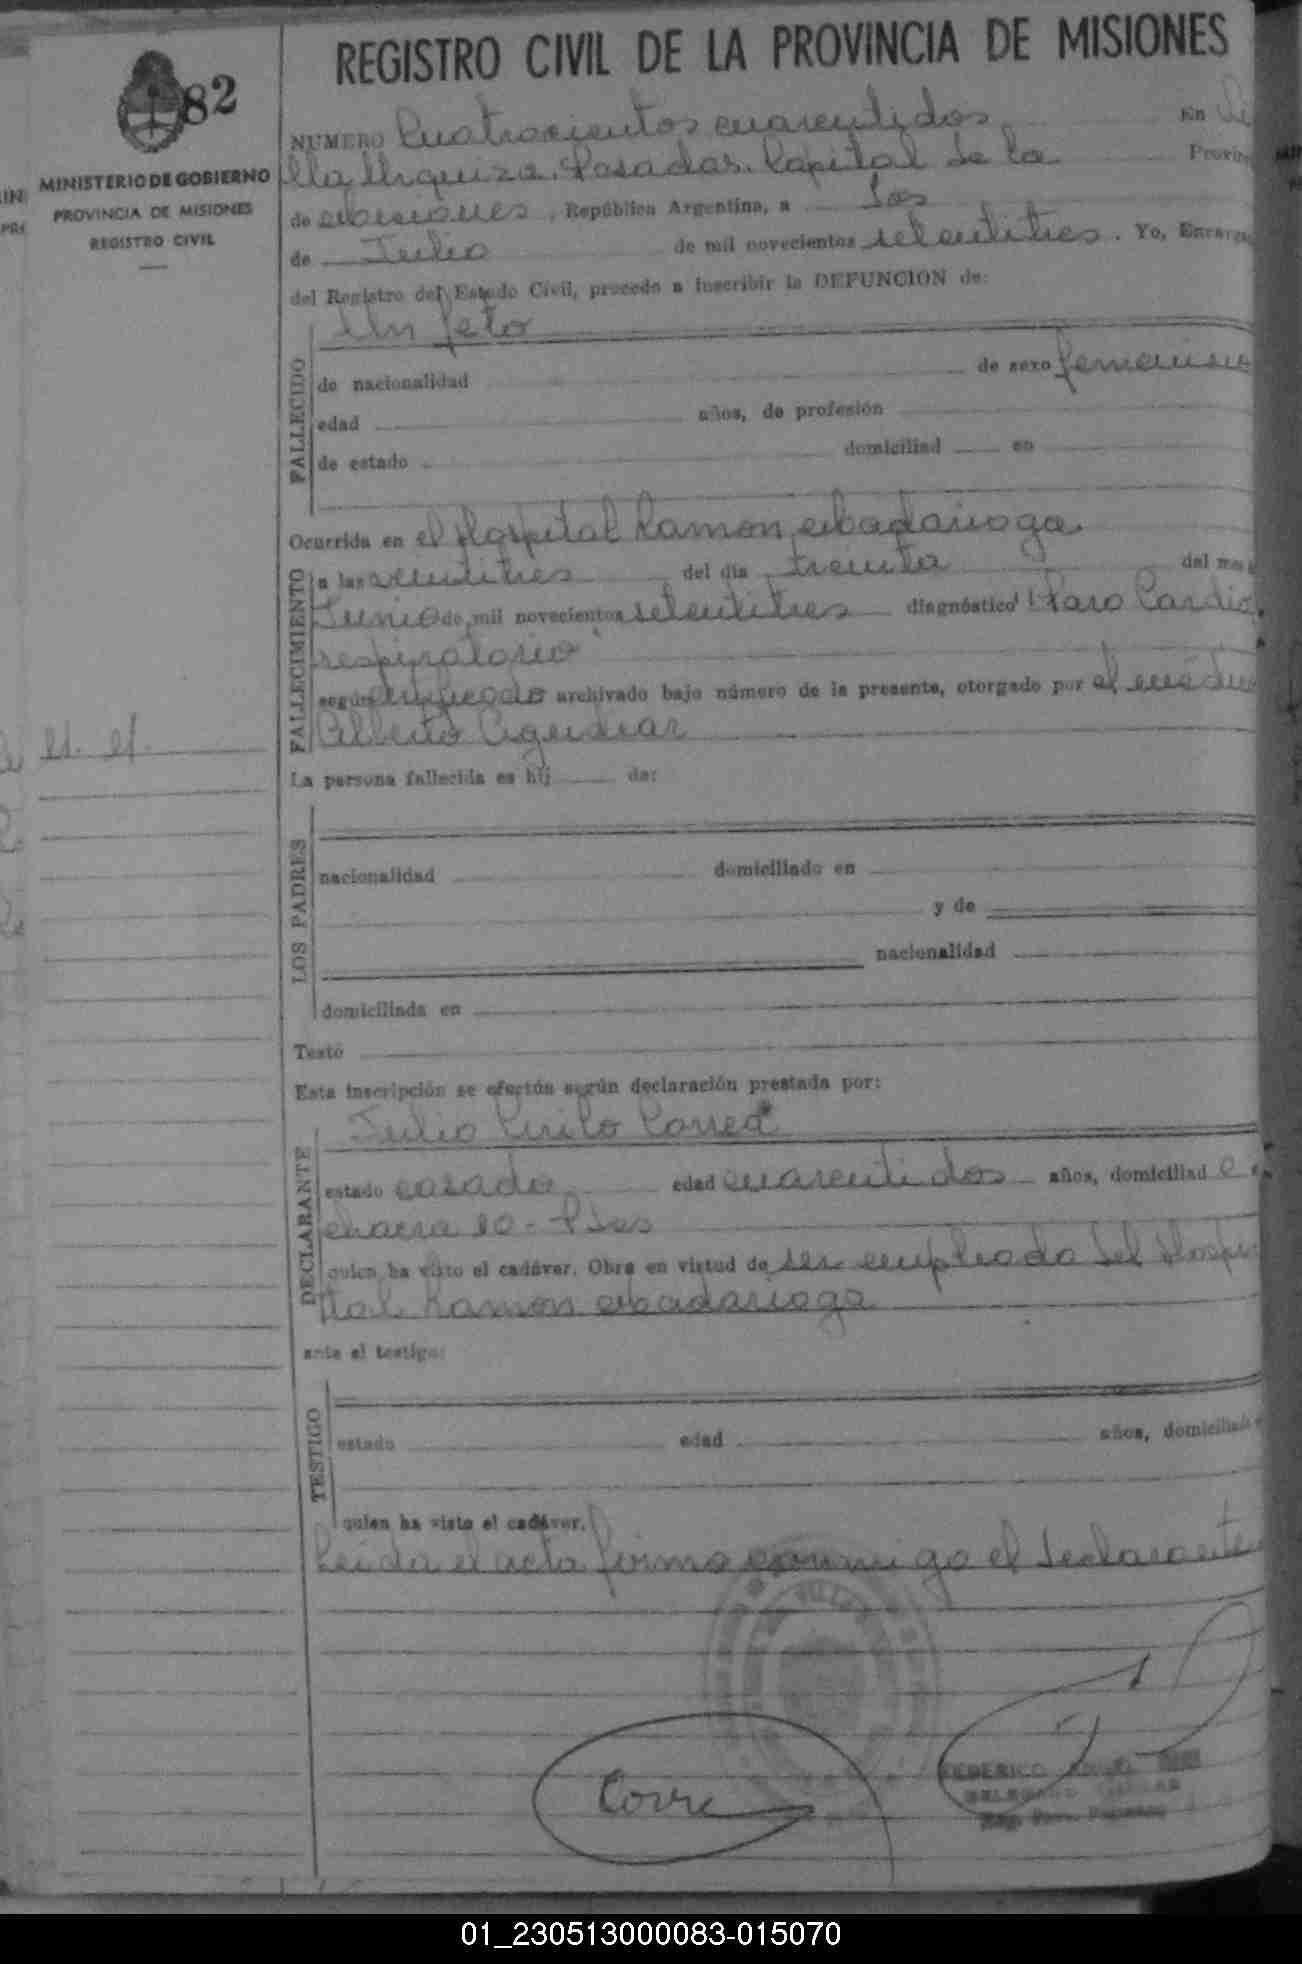 REGISTRO CIVIL DE LA PROVINCIA DE MISIONES
82
MINISTERIO DE GOBIERNO
PROVINCIA DE MISIONES
REGISTRO CIVIL
NUMERO Cuatrocientos cuarentidos En Vi
lla Urquiza, Posadas, Capital de la Provin
de Misiones, República Argentina, a dos
de Julio de mil novecientos setentitres. Yo, Encarga
del Registro del Estado Civil, procedo a inscribir la DEFUNCION de:
Un feto
FALLECIDO
de nacionalidad de sexo femenino
edad años, de profesión
de estado domiciliad en
Ocurrida en el Hospital Ramon Madariaga
FALLECIMIENTO
a las ventitres del dia treinta del mes
Junio de mil novecientos setentitres diagnóstico "Paro Cardio
respiratorio"
según certificado archivado bajo número de la presente, otorgado por el médico
Alberto Aguilar
N. N.
La persona fallecida es hij de:
LOS PADRES
nacionalidad domiciliado en
y de
nacionalidad
domiciliada en
Testó
Esta inscripción se efectúa según declaración prestada por:
Julio Cirilo Correa
DECLARANTE
estado casado edad cuarentidos años, domiciliad en
chacra 10 - Pdas
quien ha visto el cadáver. Obra en virtud de ser empleado del Hospi
tal Ramon Madariaga
ante el testigo:
TESTIGO
estado edad años, domiciliado
quien ha visto el cadáver.
Leida el acta firma conmigo el declarante
VILLA
Corre
FEDERICO
DELEGADO
01_230513000083-015070